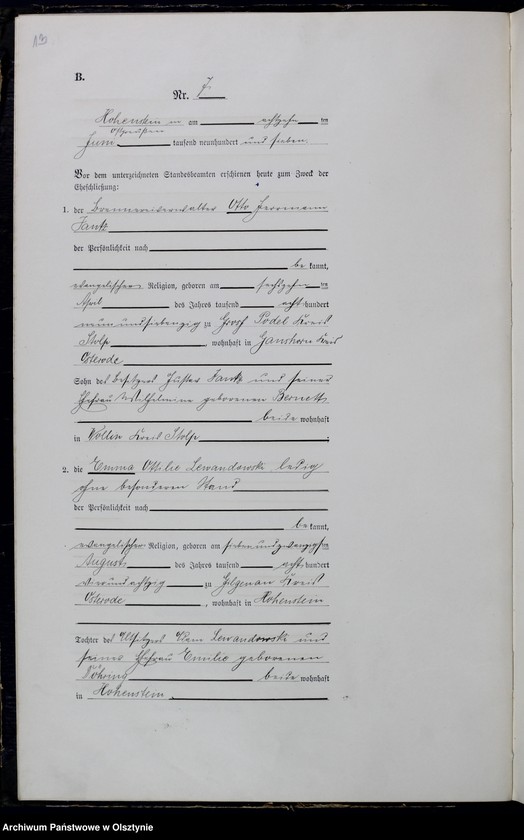 B.
Nr. 7.
Hohenstein in Ostpreußen am achtzehn ten
Juni tausend neunhundert und sieben.
Vor dem unterzeichneten Standesbeamten erschienen heute zum Zweck der
Eheschließung:
1. der Brennereiverwalter Otto Herrmann
der Persönlichkeit nach
be kannt,
evangelischer Religion, geboren am sechszehn ten
April des Jahres tausend acht hundert
neun und siebenzig zu Groß Podel Kreis
Stolp, wohnhaft in Ganshorn Kreis
Osterode
Sohn des Besitzers und seiner
Ehefrau Wilhelmine geborenen
beide wohnhaft
in Kreis Stolp.
2. die Emma Ottilie Lewandowski ledig
ohne besonderen Stand
der Persönlichkeit nach
be kannt,
evangelischer Religion, geboren am sieben und zwanzigsten
August des Jahres tausend acht hundert
vier und achtzig zu Gilgenau Kreis
Osterode, wohnhaft in Hohenstein
Tochter des Altsitzers Lewandowski und
seiner Ehefrau Emilie geborenen
beide wohnhaft
in Hohenstein.
Archiwum Państwowe w Olsztynie